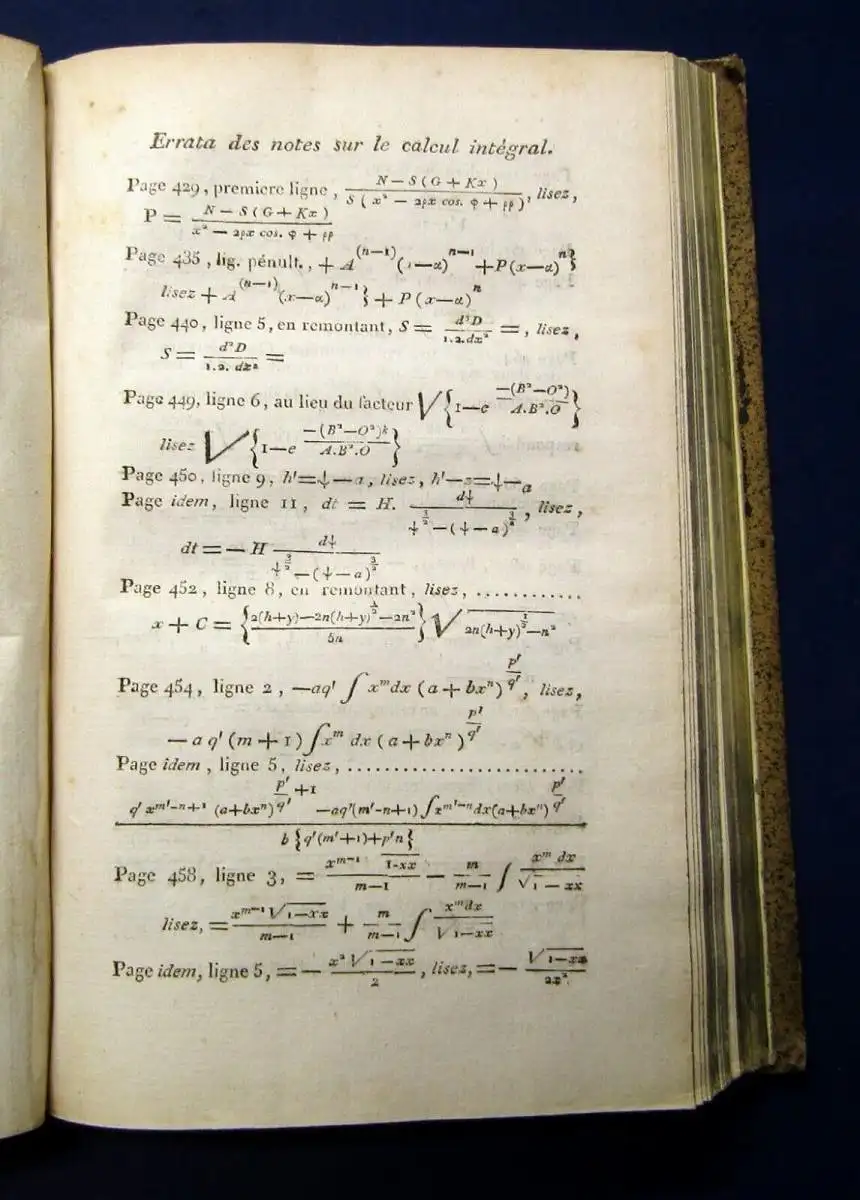 Errata des notes sur le calcul intégral.
Page 429, premiere ligne, \frac{N — S ( G + Kx )}{S ( x² — 2ρx cos. φ + ρρ )}, lisez,
P = \frac{N — S ( G + Kx )}{x² — 2ρx cos. φ + ρρ}
Page 435, lig. pénult., + A^{(n—1)} (x—α)^{n—1} + P (x—α)^{n} }
lisez + A^{(n—1)} (x—α)^{n—1} } + P (x—α)^{n}
Page 440, ligne 5, en remontant, S = \frac{d³D}{1.2.dx²} =, lisez,
S = \frac{d²D}{1.2. dx²} =
Page 449, ligne 6, au lieu du facteur √{ 1—e^{\frac{—(B²—O²)}{A.B².O}} }
lisez √{ 1—e^{\frac{—(B²—O²)k}{A.B².O}} }
Page 450, ligne 9, h'=ψ—a, lisez, h'—z=ψ—a
Page idem, ligne 11, dt = H. \frac{dψ}{ψ^{\frac{3}{2}} — (ψ—a)^{\frac{3}{2}}}, lisez,
dt = — H \frac{dψ}{ψ^{\frac{3}{2}} — (ψ—a)^{\frac{3}{2}}}
Page 452, ligne 8, en remontant, lisez, ............
x + C = { \frac{2(h+y)—2n(h+y)^{\frac{1}{2}}—2n²}{5n} } √{2n(h+y)^{\frac{1}{2}}—n²}
Page 454, ligne 2, —aq' ∫ x^{m}dx (a + bx^{n})^{\frac{p'}{q'}}, lisez,
— a q' (m + 1) ∫ x^{m} dx ( a + bx^{n} )^{\frac{p'}{q'}}
Page idem, ligne 5, lisez, ..........................
\frac{q' x^{m'-n+1} (a+bx^{n})^{\frac{p'}{q'}+1} —aq'(m'-n+1) ∫ x^{m'-n}dx(a+bx^{n})^{\frac{p'}{q'}}}{b { q'(m'+1)+p'n }}
Page 458, ligne 3, = \frac{x^{m—1} \overline{1-xx}}{m—1} — \frac{m}{m—1} ∫ \frac{x^{m} dx}{√{1 — xx}}
lisez, = \frac{x^{m—1} √{1—xx}}{m—1} + \frac{m}{m—1} ∫ \frac{x^{m}dx}{√{1—xx}}
Page idem, ligne 5, = — \frac{x² √{1 — xx}}{2}, lisez, = — \frac{√{1—xx}}{2x²}